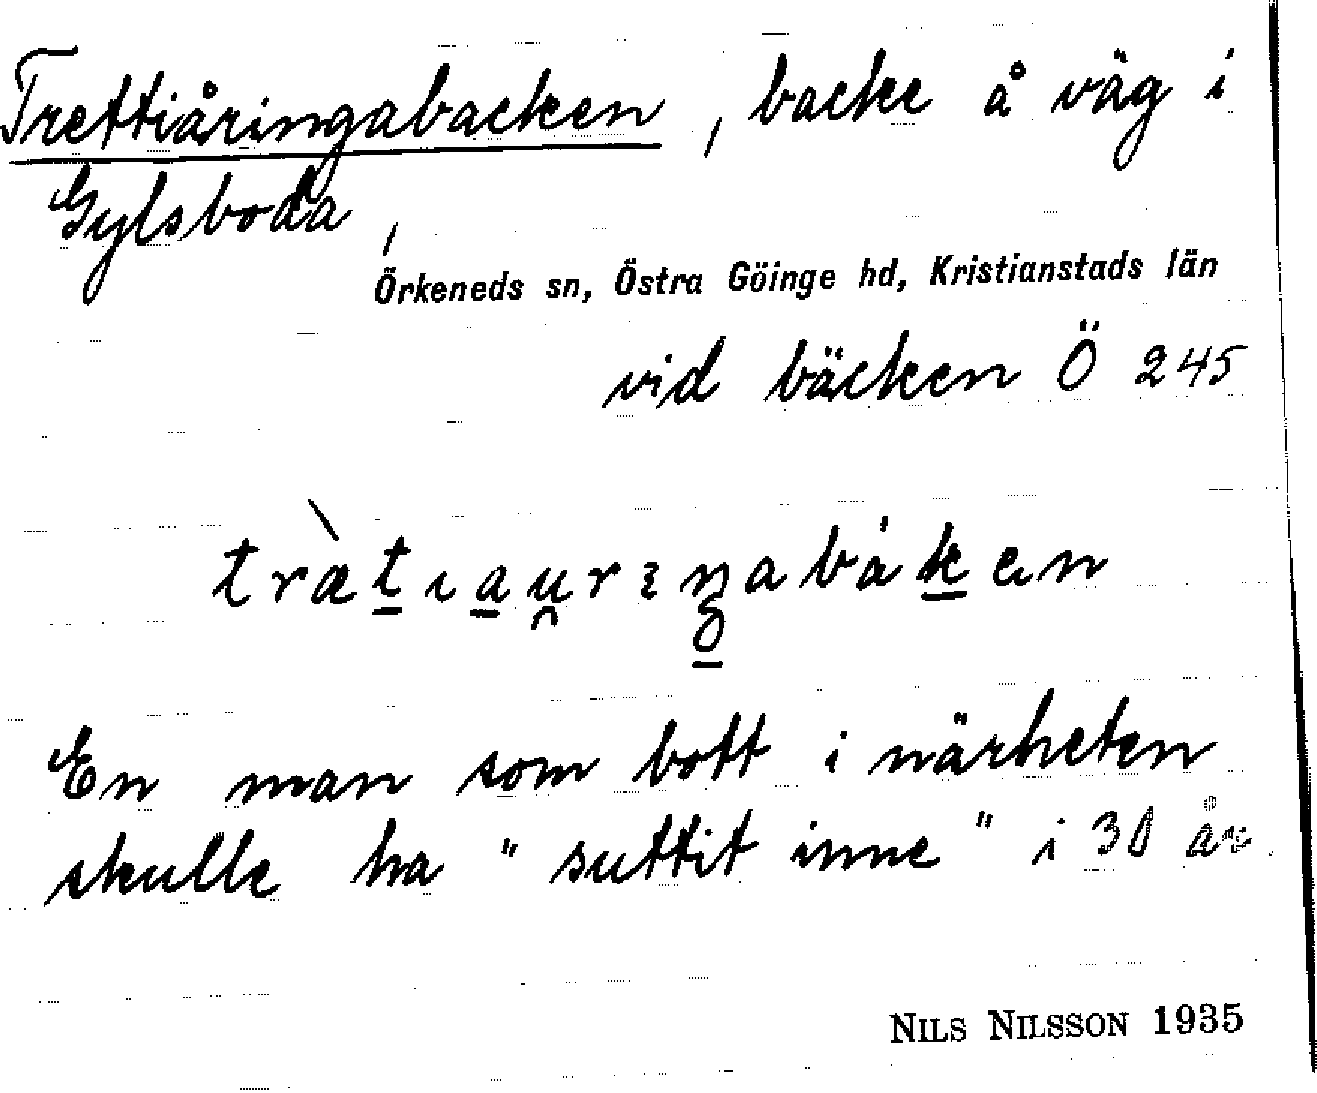 Trettiåringabacken, backe å väg i
Gylsboda,
Örkeneds sn, Östra Göinge hd, Kristianstads län
vid bäcken Ö 245
En man som bott i närheten
skulle ha "suttit inne" i 30 år.
NILS NILSSON 1935